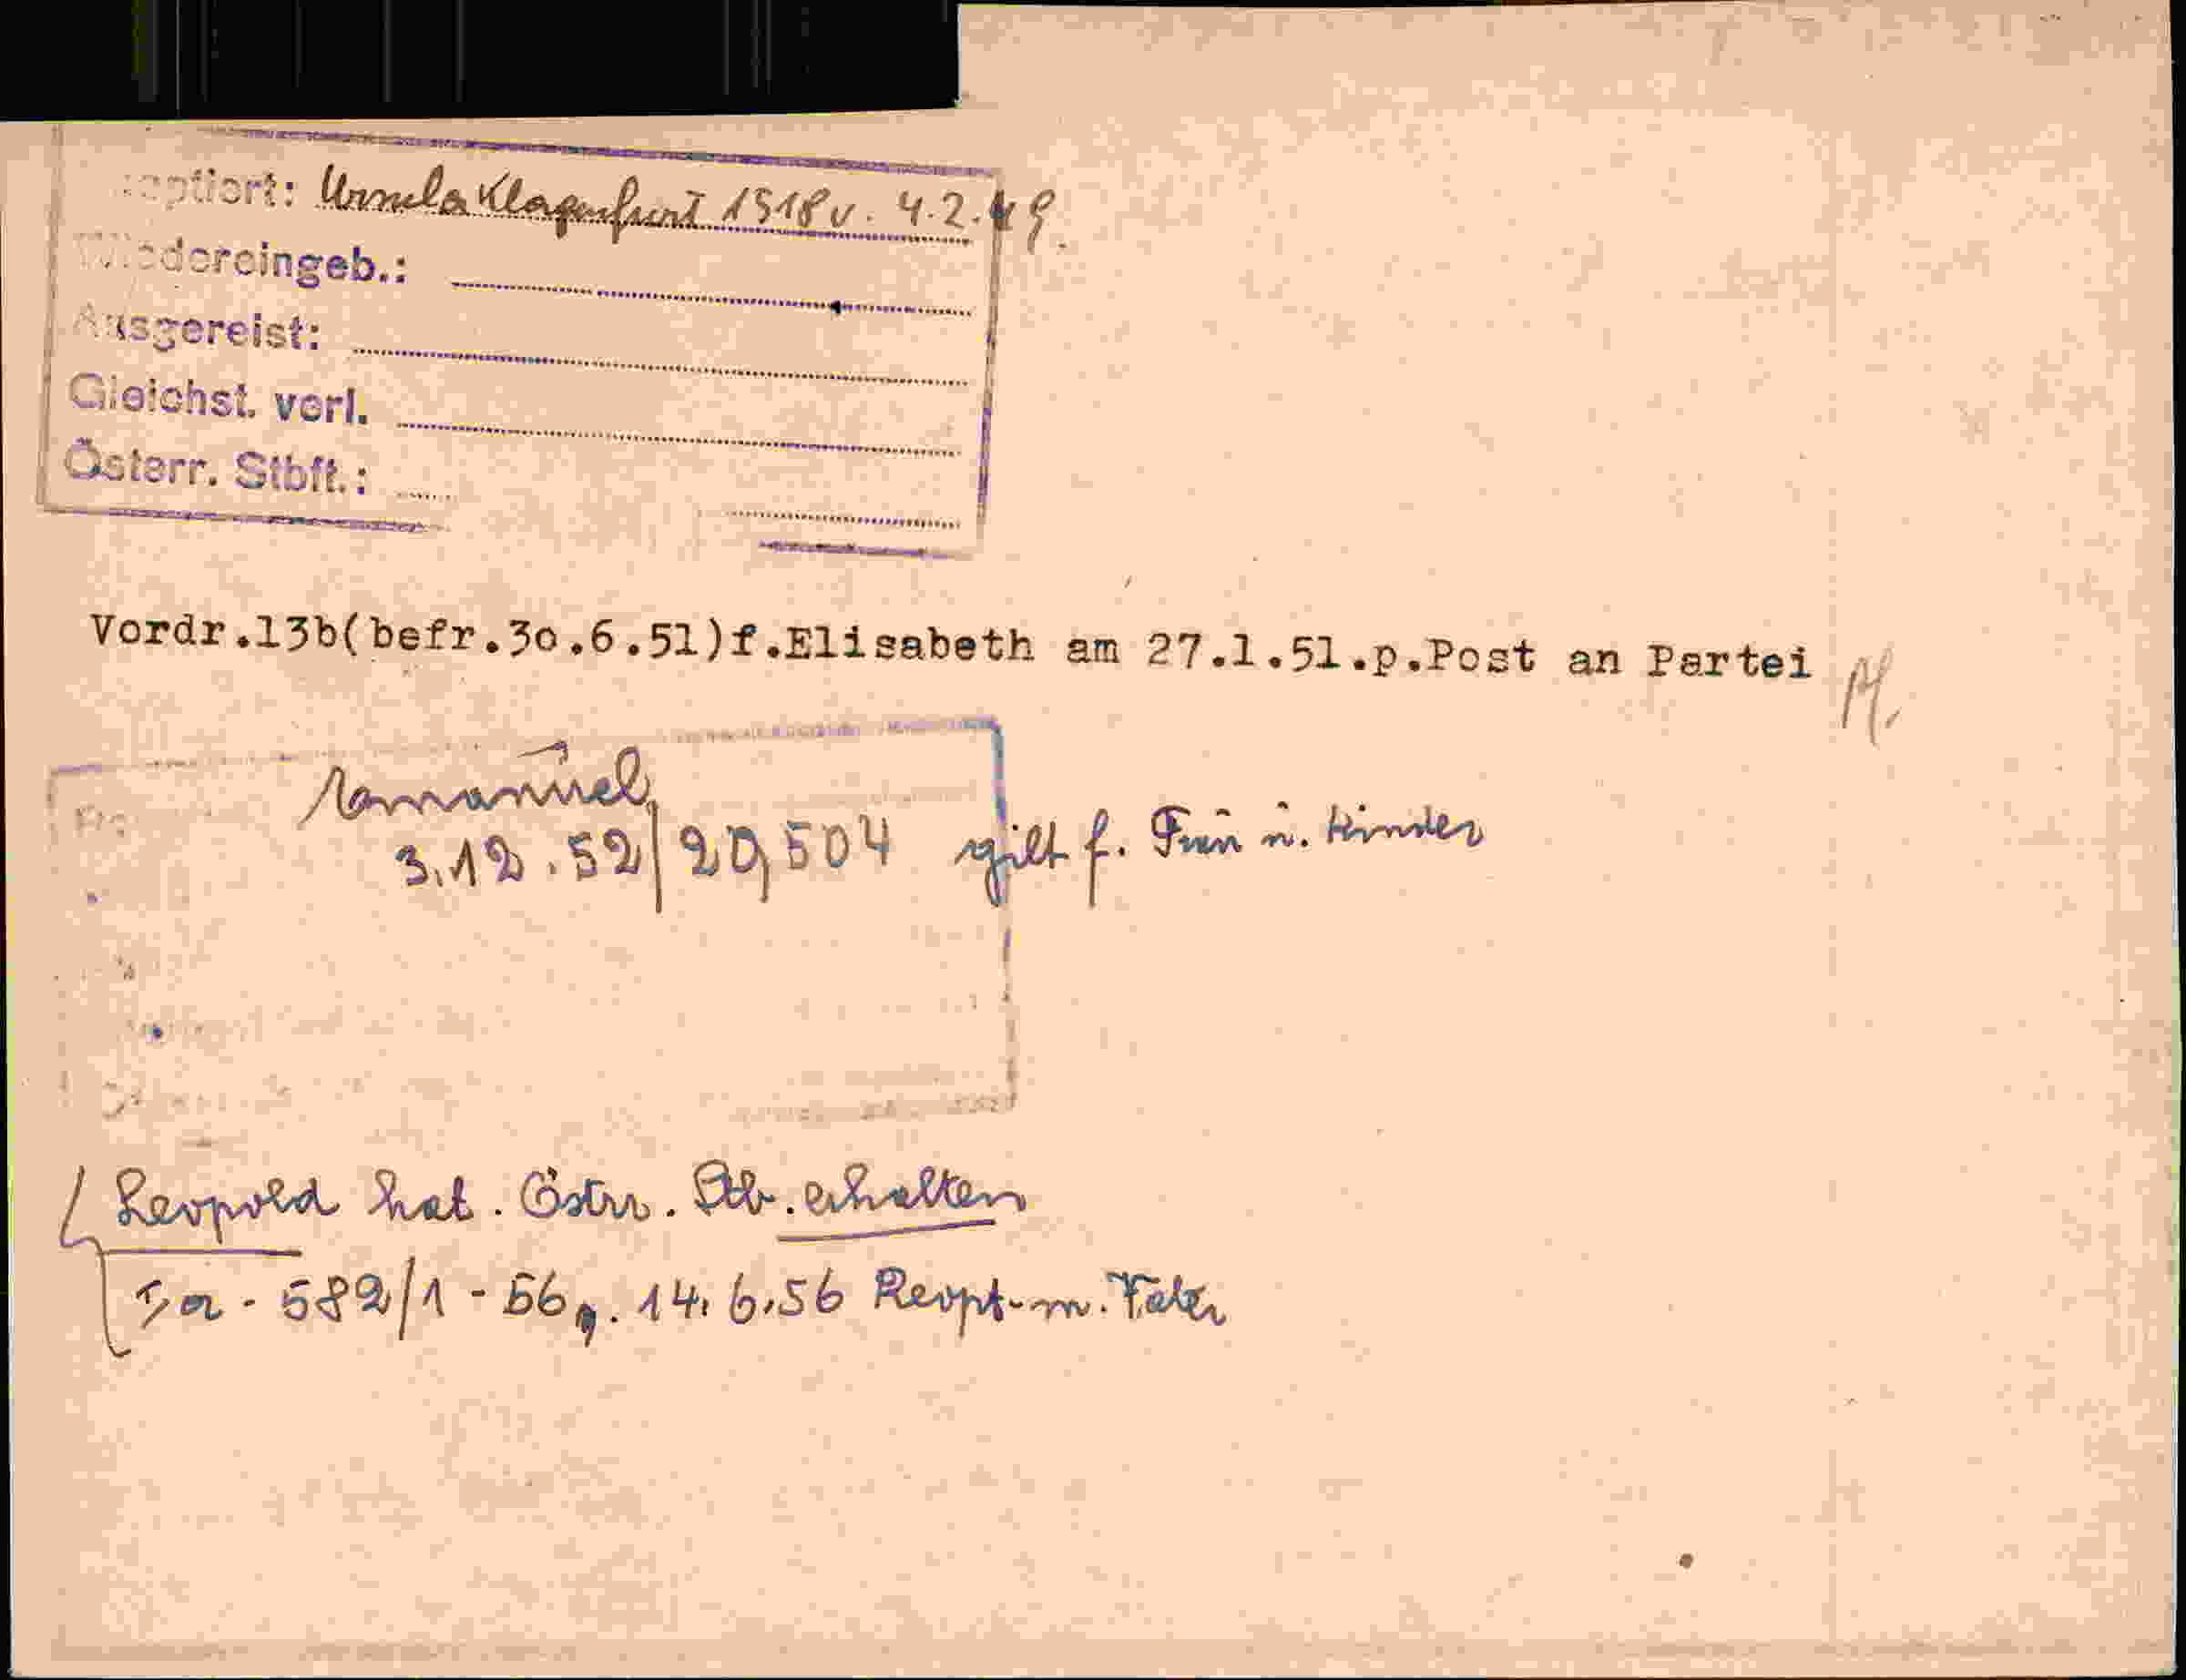 reoptiert: Ursula Klagenfurt 1518 v. 4.2.49.
Wiedereingeb.:
Ausgereist:
Gleichst. verl.
Österr. Stbft.:
Vordr.13b(befr.30.6.51)f.Elisabeth am 27.1.51.p.Post an Partei
Emanuel
3.12.52/20,504 gilt f. Frau u. Kinder
Leopold hat. Östr. Stb. erhalten
Ia - 582/1 - 56, . 14.6.56 Reopt. m. Vater